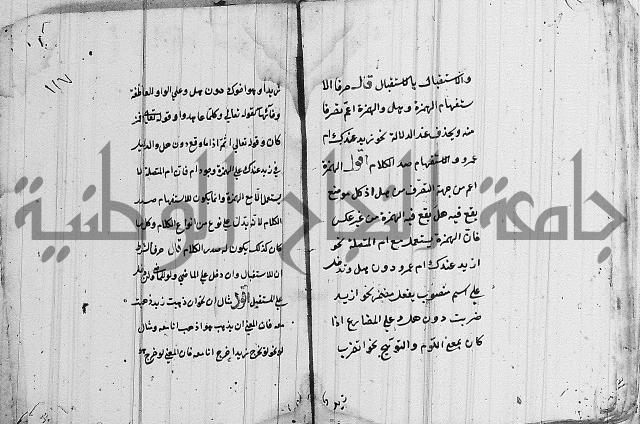 والاستقبال بالاستقبال قال حرفا الا
ستفهام الهمزة وهل والهمزة اعم تصرفا
منه ويحذف عند الدلالة نحو زيد عندك ام
عمرو والاستفهام صدر الكلام اقول الهمزة
اعم من جهة التصرف من هل اذ كل موضع
يقع فيه هل يقع فيه الهمزة من غير عكس
فان الهمزة يستعمل مع ام المتصلة نحو
ازيد عندك ام عمرو دون هل وتدخل
على اسم منصوب بفعل مضمر نحو ازيد
ضربت دون هل وعلى المضارع اذا
كان بمعنى اللوم والتوبيخ نحو اتضرب
١١٧
زيدا وهو اخوك دون هل وعلى الواو العاطفة
وفائها كقوله تعالى وكلما عاهدوا وقوله تعالى
كان وقوله تعالى اثم اذا ما وقع دون هل والدليل
في زيد عندك على الهمزة وجود ام فان ام المتصلة لا
يستعمل الا مع الهمزة وانما يكون للاستفهام صدر
الكلام لانه يدل على نوع من انواع الكلام وكلما
كان كذلك يكون له صدر الكلام قال حرفا الشرط
ان للاستقبال وان دخل على الماضي ولو للماضي وان دخل
على المستقبل اقول مثال ان نحو ان ذهبت زيد ذهبت
معه فان المعنى ان يذهب هو اذهب انا معه ومثال
لو نحو لو تخرج زيد اخرج انا معه فان المعنى لو خرج هو
جامعة النجاح الوطنية